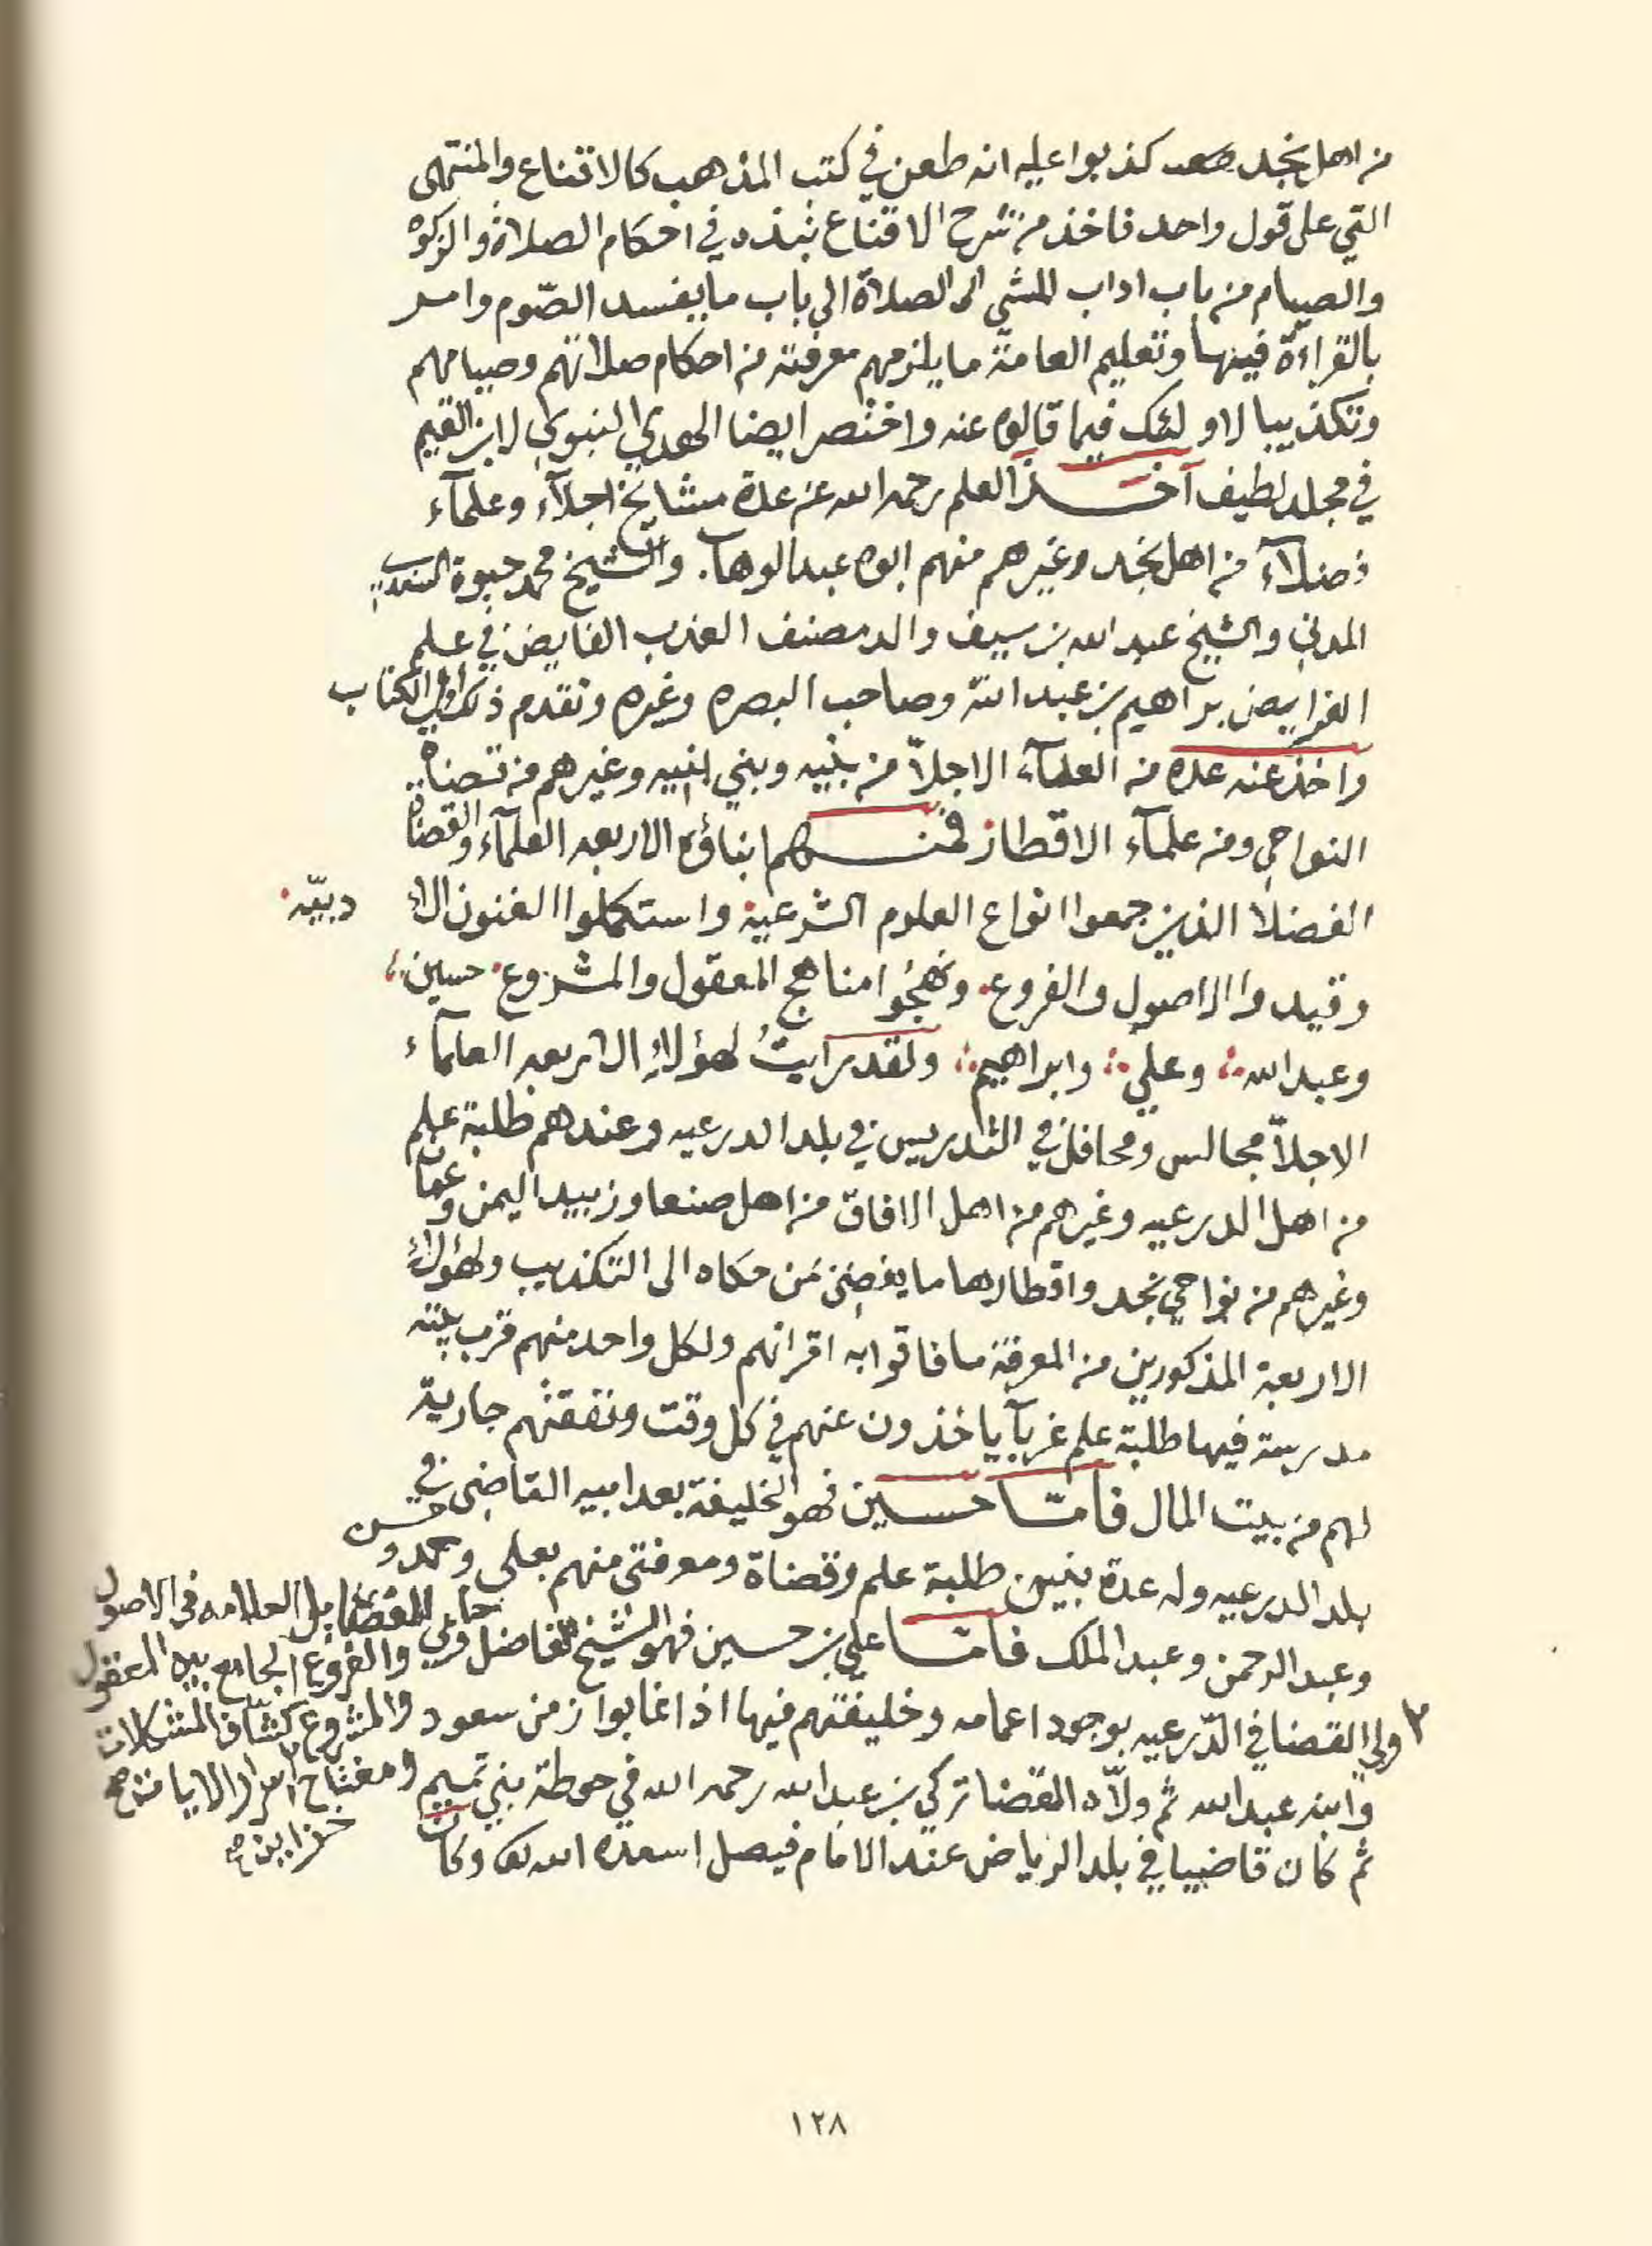 من اهل نجد كذبوا عليه انه طعن في كتب المذهب كالاقناع والمنتهى
التي على قول واحد فاخذ من شرح الاقناع نبذه في احكام الصلاة والزكوة
والصيام من باب اداب المشي الى الصلاة الى باب ما يفسد الصّوم وامر
بالقراءة فيها وتعليم العامة ما يلزمهم معرفته من احكام صلاتهم وصيامهم
وتكذيبا لاولئك فيما قالوه عنه واختصر ايضا الهدي النبوي لابن القيم
في مجلد لطيف اخذ العلم رحمه الله عن عدة مشايخ اجلآء وعلمآء
فضلآء من اهل نجد وغيرهم منهم ابوه عبدالوهاب. والشيخ محمد حيوة السندي
المدني والشيخ عبد الله بن سيف والد مصنف العذب الفايض في علم
الفرايض براهيم بن عبد الله وصاحب البصره وغيره وتقدم ذلك اول الكتاب
واخذ عنه عده من العلمآء الاجلاّ من بنيه وبني بنيه وغيرهم من قضاة
النواحي ومن علمآء الاقطار فمنهم ابناؤه الاربعه العلمآء والقضاة
الفضلا الذين جمعوا انواع العلوم الشرعية واستكملوا الفنون الادبيّه
وقيدوا الاصول والفروع ونهجُوا مناهج المعقول والمشروع حسين
وعبد الله وعلي وابراهيم ولقد رايتُ لهؤلاءِ الاربعه العلمآء
الاجلاّ مجالس ومحافل في التدريس في بلد الدرعيه وعندهم طلبة علم
من اهل الدرعيه وغيرهم من اهل الافاق من اهل صنعا وزبيد اليمن وعمان
وغيرهم من نواحي نجد واقطارها ما يفضي مَن حكاه الى التكذيب ولهؤلاءِ
الاربعة المذكورين من المعرفة ما فاقوا به اقرانهم ولكل واحد منهم قرب بيته
مدرسة فيها طلبة علم غربآ ياخذون عنهم في كل وقت ونفقتهم جارية
لهم من بيت المال فامّا حسين فهو الخليفة بعد ابيه القاضي في
بلد الدرعيه وله عدة بنين طلبة علم وقضاة ومعرفتي منهم بعلي وحمد وحسن
وعبد الرحمن وعبد الملك فامّا علي بن حسين فهو الشيخ الفاضل وحاوي الفضايل العلامه في الاصول
والفروع الجامع بين المعقول
٢ ولي القضا في الدّرعيه بوجود اعمامه وخليفتهم فيها اذا غابوا زمن سعود والمشروع كشّاف المشكلات
وابنه عبد الله ثم ولاّه القضا تركي بن عبد الله رحمه الله في حوطة بني تميم ومفتاح
ثم كان قاضيا في بلد الرياض عند الامام فيصل اسعده الله تعالى وكان
١٢٨